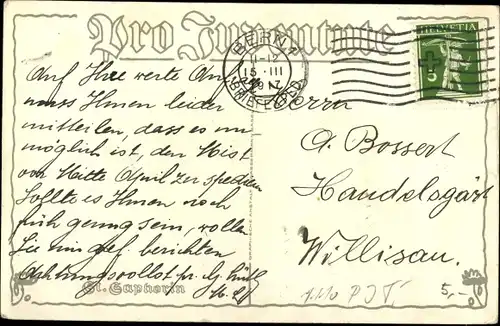 Pro Juventute
HELVETIA
5
BERN 1
11-12
15. III
BRIEFEXPED.
Auf Ihre werte Anf
muss Ihnen leider
mitteilen, dass es un
möglich ist, den Mist
vor Mitte April zu spedieren
Sollte es Ihnen noch
früh genug sein, wollen
Sie mir gef. berichten
Achtungsvollst
Herrn
A. Bossert
Handelsgärt
Willisau.
St. Saphorin
5,-